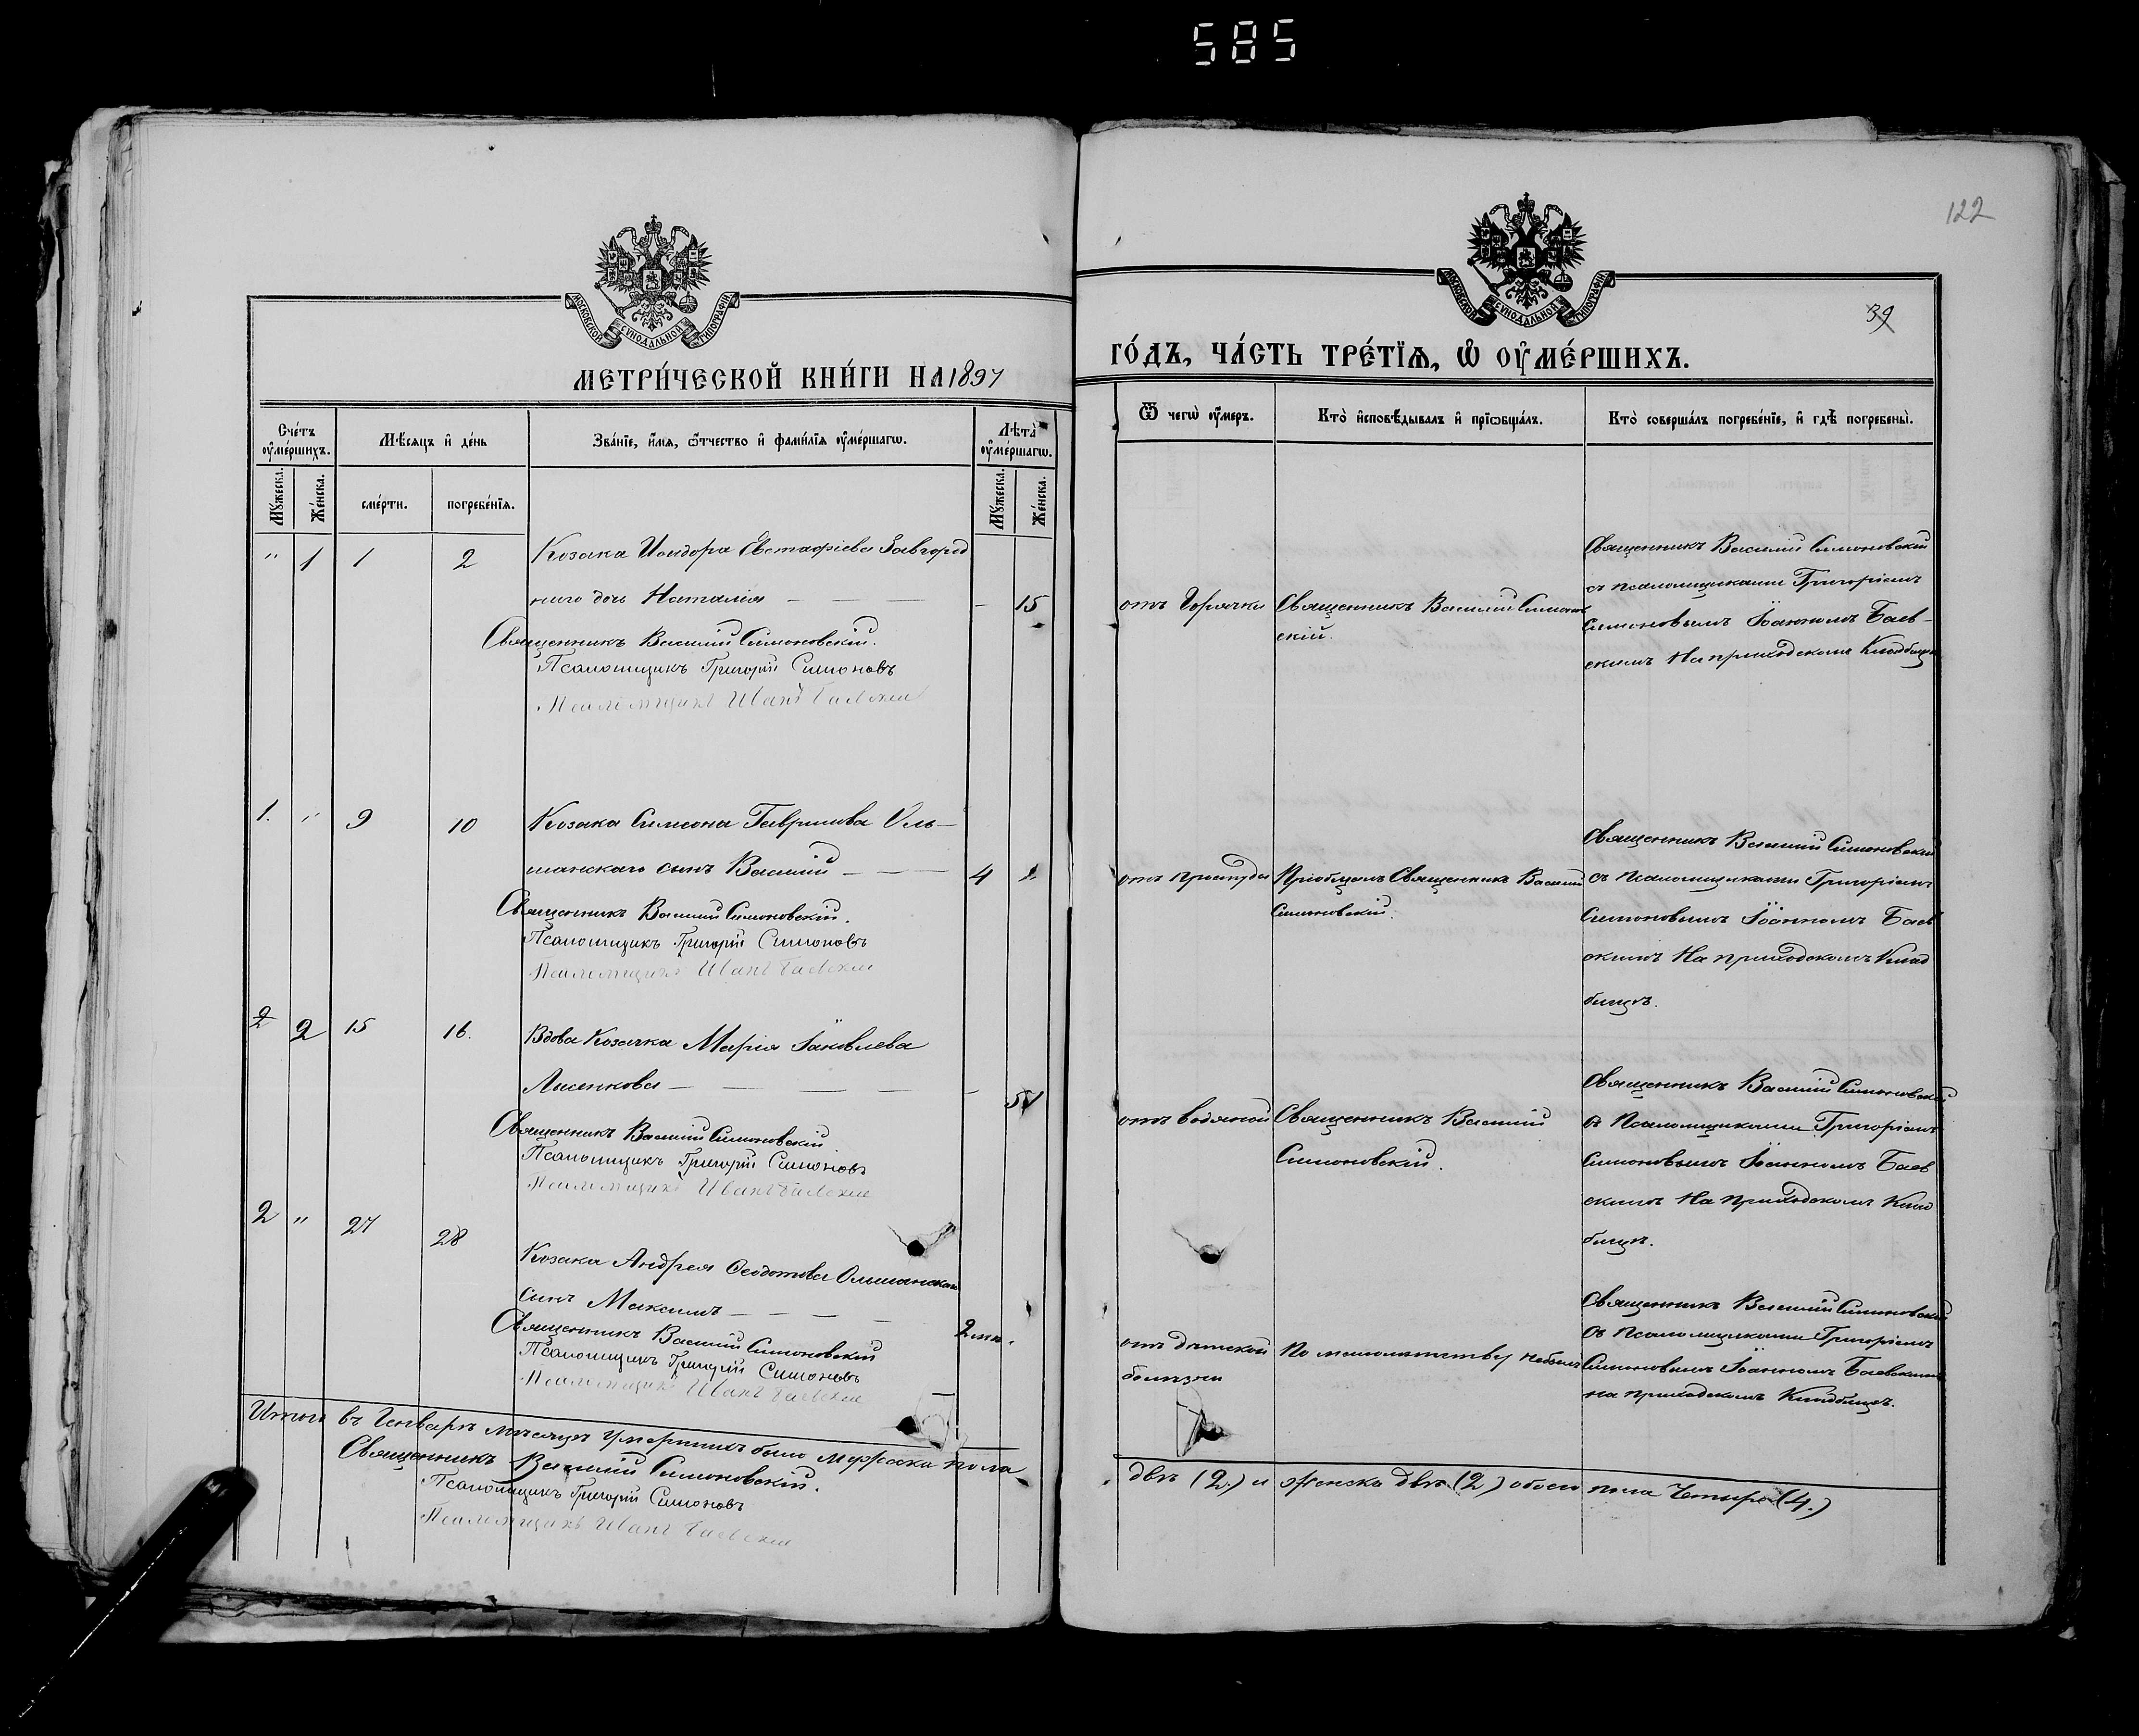 585
122
39
МОСКОВСКОЙ СѴНОДАЛЬНОЙ ТИПОГРАФІИ
МОСКОВСКОЙ СѴНОДАЛЬНОЙ ТИПОГРАФІИ
МЕТРИ́ЧЕСКОЙ КНИ́ГИ НА 1897
ГО́ДЪ, ЧА́СТЬ ТРЕ́ТЇѦ, Ѽ ОУ҆МЕ́РШИХЪ.
Сче́тъ оу҆ме́ршихъ.
Мꙋ́жеска.
Же́нска.
Мѣ́сяцъ и҆ де́нь
сме́рти.
погребе́нїя.
Зва́нїе, и҆́мя, ѻ҆́тчество и҆ фами́лїя оу҆ме́ршагѡ.
Лѣ́та оу҆ме́ршагѡ.
Мꙋ́жеска.
Же́нска.
Ѿ чегѡ̀ оу҆́меръ.
Кто̀ и҆сповѣ́дывалъ и҆ прїѡбща́лъ.
Кто̀ соверша́лъ погребе́нїе, и҆ гдѣ̀ погребены̀.
" 1 1 2 Козака Исидора Евстафіева Завгород
няго дочь Наталія — — — — 15
Священникъ Василій Симоновскій.
Псаломщикъ Григорій Симоновъ
Псаломщикъ Иванъ Баевскій
отъ Горячки
Священникъ Василій Симонов
скій.
Священникъ Василій Симоновскій
съ псаломщиками Григоріемъ
Симоновымъ Іоанномъ Баев-
скимъ На приходскомъ Кладбищѣ
1. " 9 10 Козака Симеона Гаврилова Оль-
шанскаго сынъ Василій — — — 4 "
Священникъ Василій Симоновскій.
Псаломщикъ Григорій Симоновъ
Псаломщикъ Иванъ Баевскій
отъ простуды
Пріобщалъ Священникъ Василій
Симоновскій.
Священникъ Василій Симоновскій
съ Псаломщиками Григоріемъ
Симоновымъ Іоанномъ Баев
скимъ На приходскомъ Клад
бищѣ.
2 2 15 16. Вдова Козачка Марія Іаковлева
Лисенкова — — — — — 51
Священникъ Василій Симоновскій
Псаломщикъ Григорій Симоновъ
Псаломщикъ Иванъ Баевскій
отъ водяной
Священникъ Василій
Симоновскій.
Священникъ Василій Симоновскій
съ Псаломщиками Григоріемъ
Симоновымъ Іоанномъ Баев
скимъ На приходскомъ Клад
бищѣ.
2 " 27 28 Козака Андрея Ѳеодотова Ольшанскаго
сынъ Максимъ — — — — 2 мѣс.
Священникъ Василій Симоновскій
Псаломщикъ Григорій Симоновъ
Псаломщикъ Иванъ Баевскій
отъ дѣтской
болѣзни
По малолѣтству небылъ
Священникъ Василій Симоновскій
съ Псаломщиками Григоріемъ
Симоновымъ Іоанномъ Баевскимъ
на приходскомъ Кладбищѣ.
Итого въ Генварѣ мѣсяцѣ умершихъ было мужеска пола
двѣ (2.) и женска двѣ (2) обоего пола Четыре (4.)
Священникъ Василій Симоновскій.
Псаломщикъ Григорій Симоновъ
Псаломщикъ Иванъ Баевскій